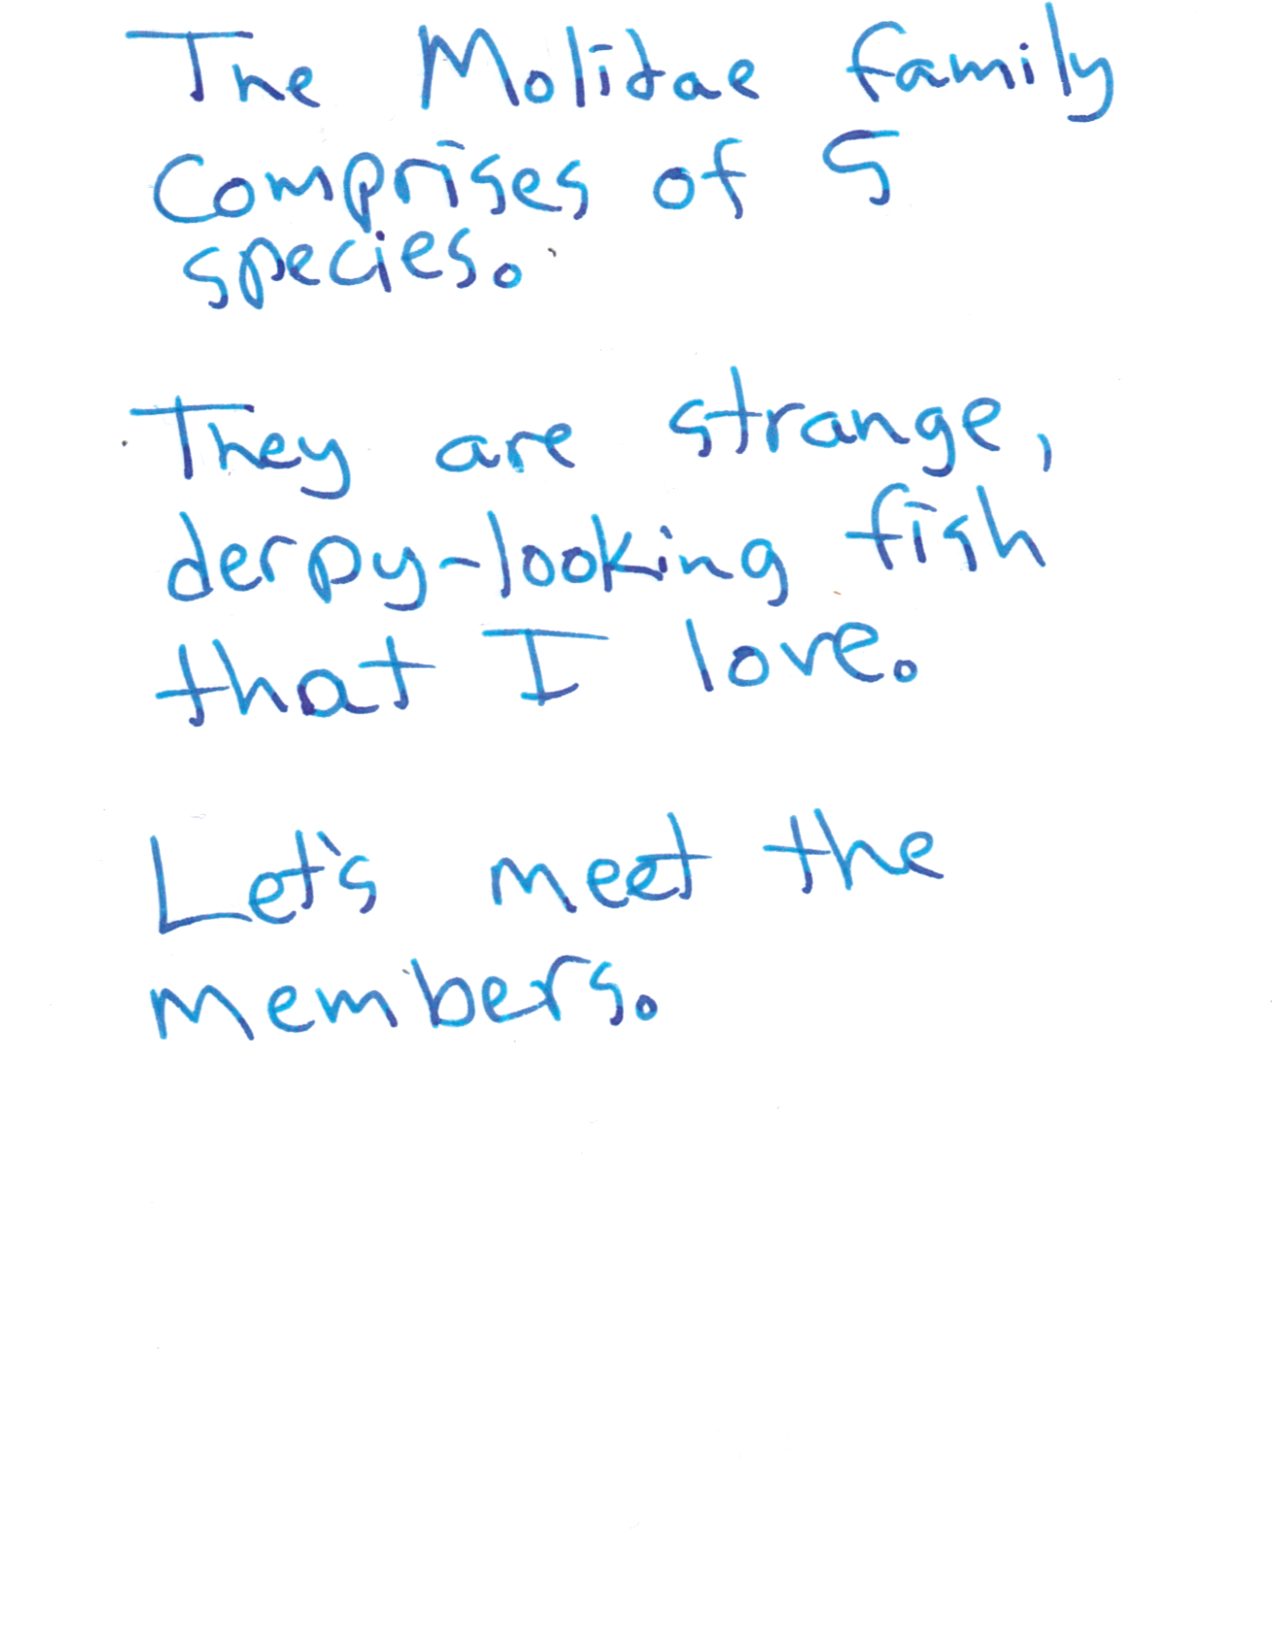 The Molidae family
comprises of 5
species.
They are strange,
derpy-looking fish
that I love.
Let's meet the
members.